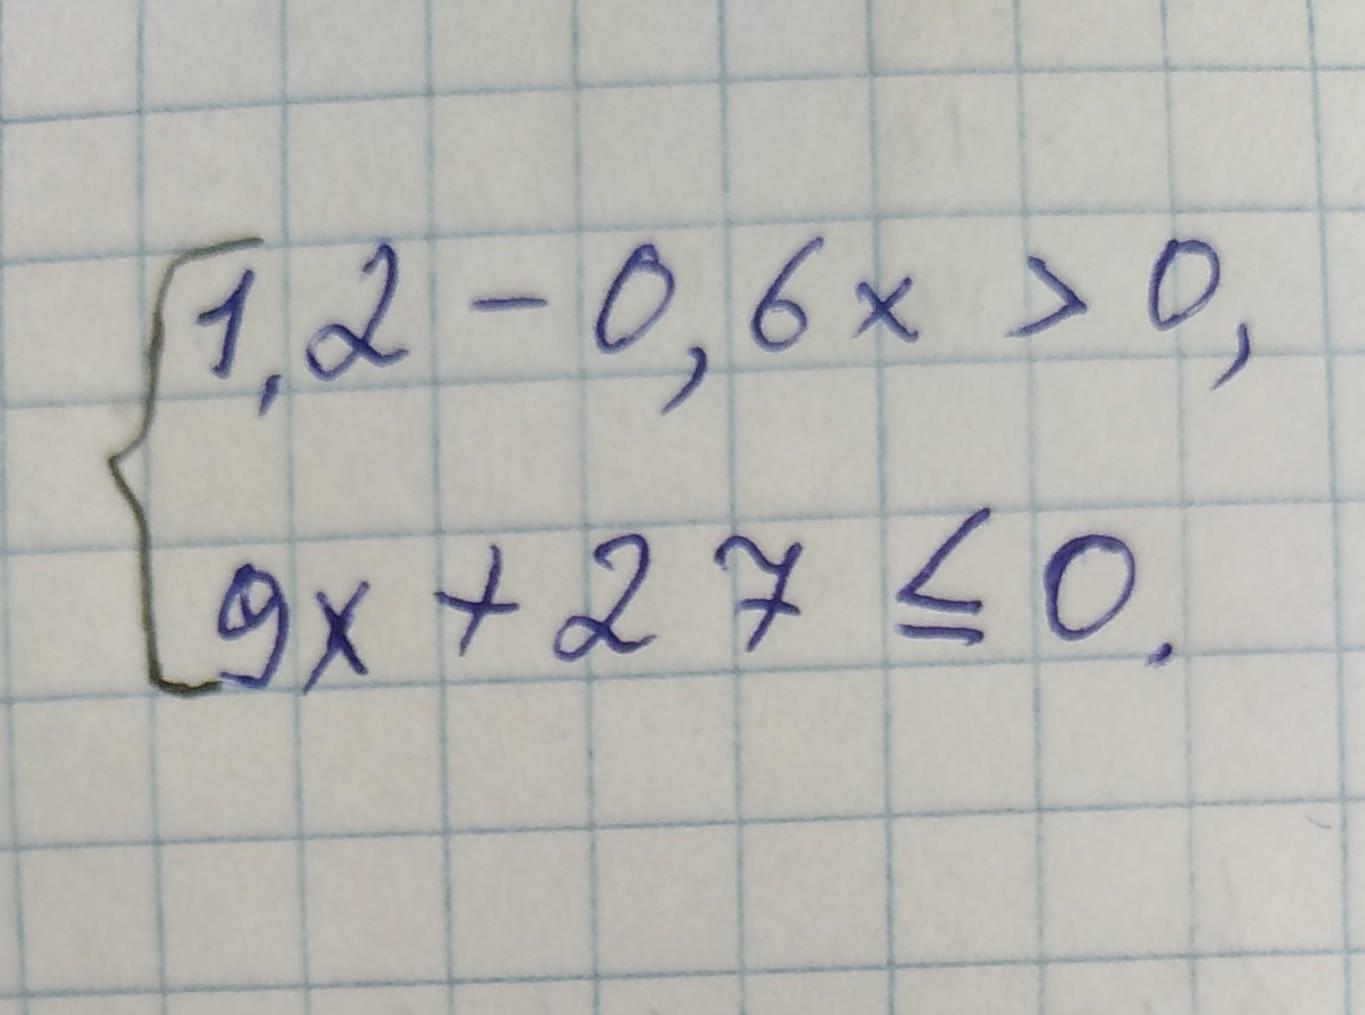 1,2 - 0,6x > 0,
9x + 27 ≤ 0.